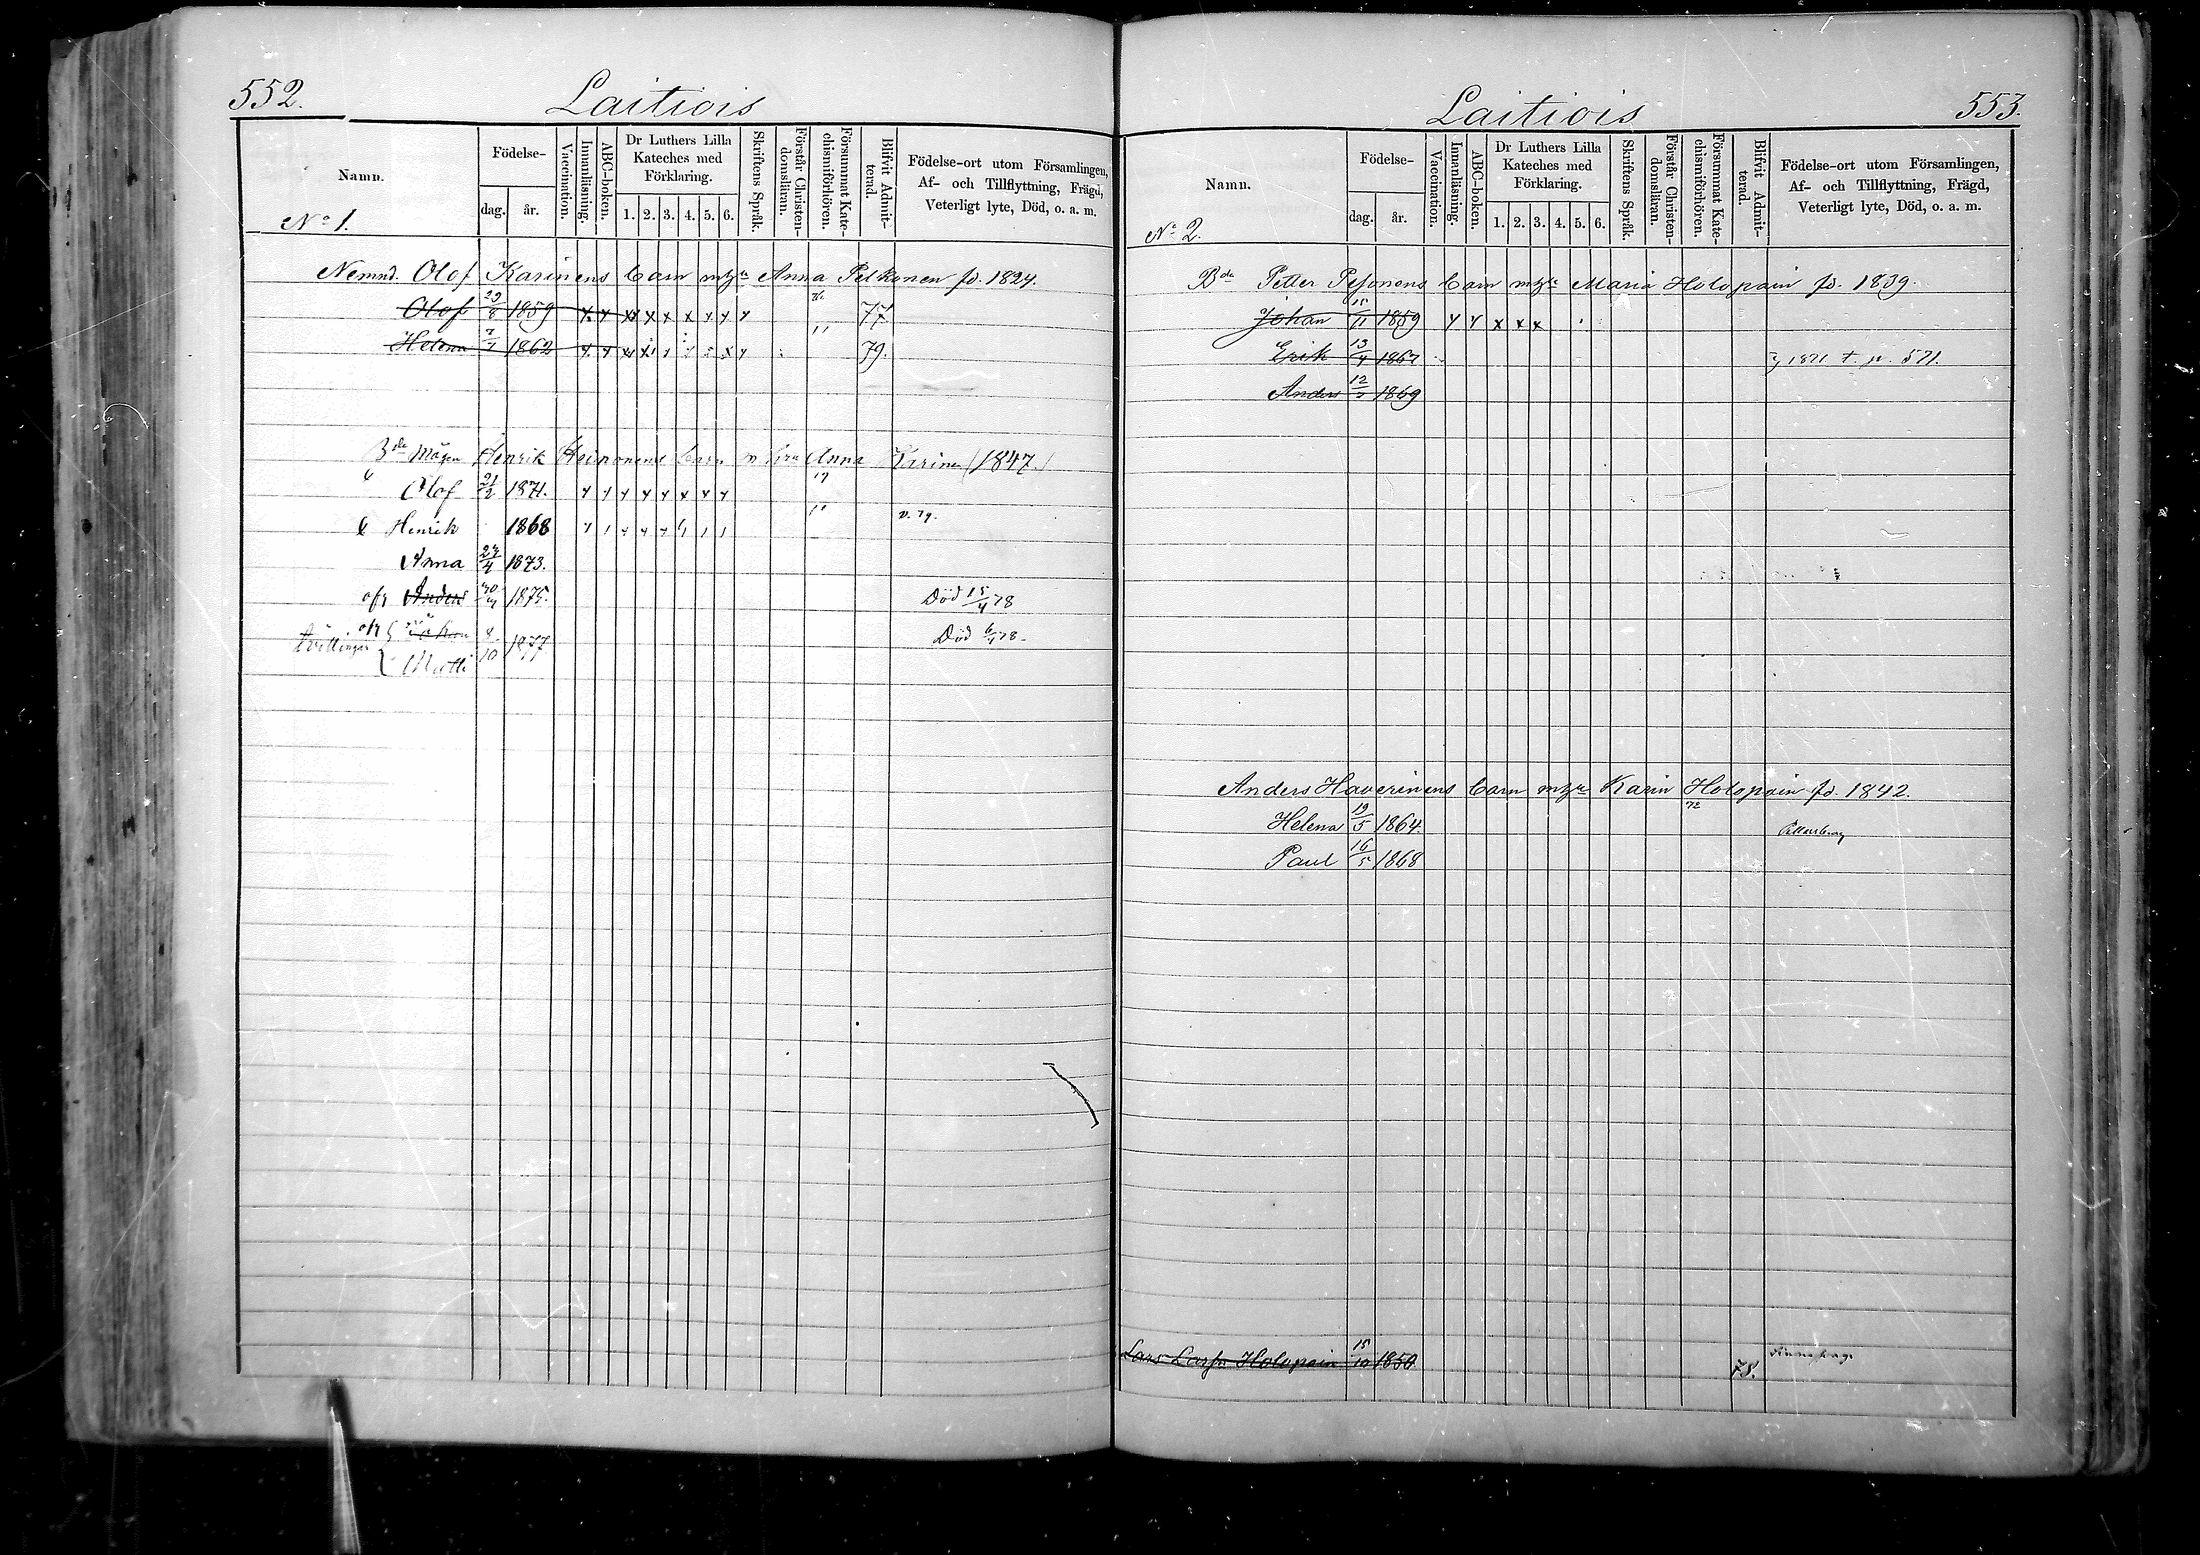 552.
Laitiois
Namn.
Födelse-
dag.
år.
Vaccination.
Innanläsning.
ABC-boken.
Dr Luthers Lilla
Kateches med
Förklaring.
1. 2. 3. 4. 5. 6.
Skriftens Språk.
Förstår Christen-
domsläran.
Försummat Kate-
chismiförhören.
Blifvit Admit-
terad.
Födelse-ort utom Församlingen,
Af- och Tillflyttning, Frägd,
Veterligt lyte, Död, o. a. m.
No 1.
Nemnd. Olof Karinens barn Anna Pelkonen fd. 1824.
Olof 1859 x x x x x x x x x 77
Helena 1862 79.
Mågen Henrik Heinonens barn Anna Karinen (1847.)
Olof 21/2 1871.
Henrik 1868
Anna 1873.
ofr Anders 1875. Död 15/4 78
Tvillingar 8/10 1877 Död 78
Matti
553.
Laitiois
Namn.
Födelse-
dag.
år.
Vaccination.
Innanläsning.
ABC-boken.
Dr Luthers Lilla
Kateches med
Förklaring.
1. 2. 3. 4. 5. 6.
Skriftens Språk.
Förstår Christen-
domsläran.
Försummat Kate-
chismiförhören.
Blifvit Admit-
terad.
Födelse-ort utom Församlingen,
Af- och Tillflyttning, Frägd,
Veterligt lyte, Död, o. a. m.
No 2.
Bde Petter Pesonens barn Maria Holopain fd. 1839.
Johan 15/11 1859
Erik 13/4 1867 1871 t. p. 571.
Anders 1869
Anders Haverinens barn Karin Holopain fd. 1842.
72
Helena 19/5 1864
Paul 16/5 1868
Lars Holopain 15/10 1850 78.